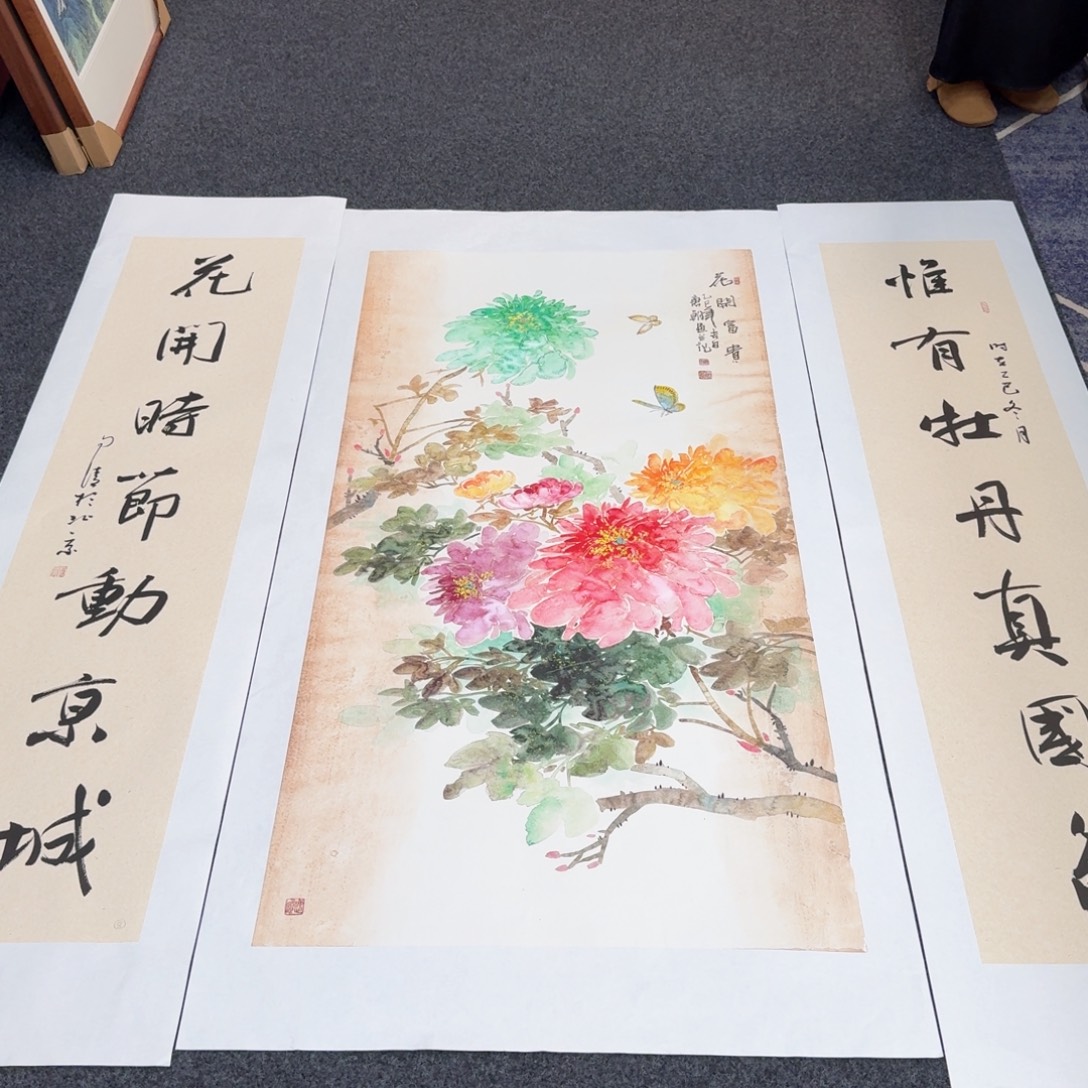 惟有牡丹真國色
時在乙巳冬月
花開富貴
花開時節動京城
於北京